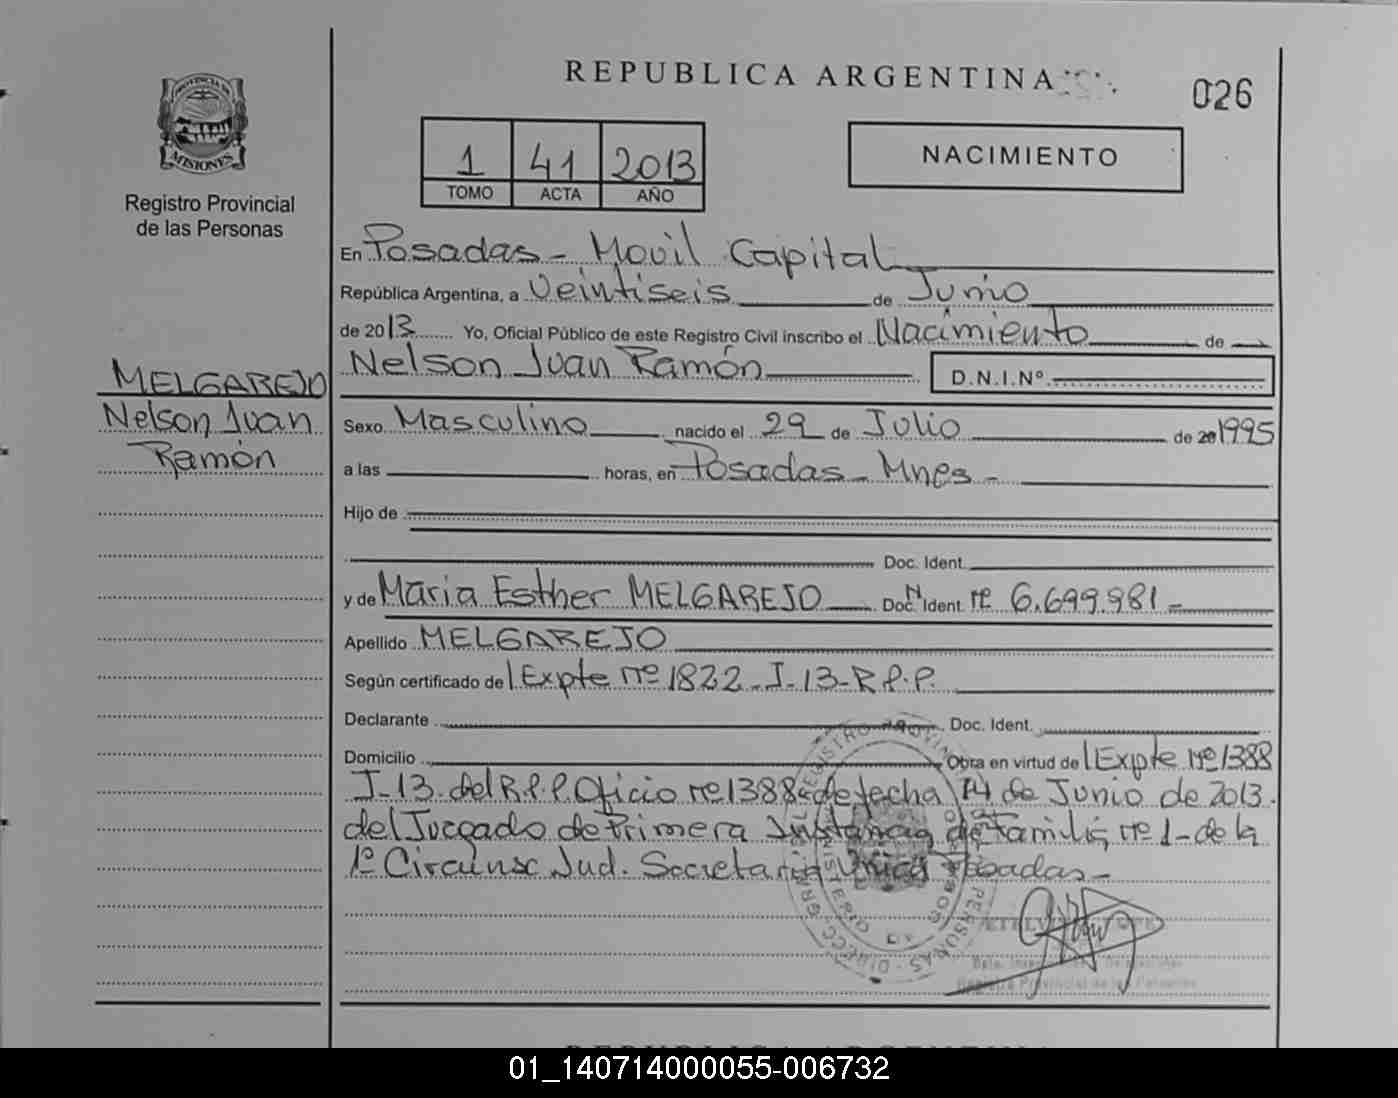 REPUBLICA ARGENTINA
026
PROVINCIA DE
MISIONES
Registro Provincial
de las Personas
1 41 2013
TOMO ACTA AÑO
NACIMIENTO
En Posadas - Movil Capital
República Argentina, a Veintiseis de Junio
de 2013 Yo, Oficial Público de este Registro Civil inscribo el Nacimiento de
Nelson Juan Ramón D.N.I.Nº
MELGAREJO
Nelson Juan
Ramón
Sexo Masculino nacido el 29 de Julio de 1995
a las horas, en Posadas - Mnes -
Hijo de
Doc. Ident.
y de Maria Esther MELGAREJO Doc. Ident. M Nº 6.699.981 -
Apellido MELGAREJO
Según certificado de l Expte nº 1822 - I - 13 - R.P.P.
Declarante Doc. Ident.
Domicilio Obra en virtud de l Expte Nº 1388
I - 13 del R.P.P. Oficio nº 1388 de fecha 14 de Junio de 2013.
del Juzgado de Primera Instancia de Familia nº 1 - de la
1º Circunsc. Jud. Secretaria Unica Posadas -
REGISTRO PROVINCIAL DE LAS PERSONAS
MINISTERIO DE
Registro Provincial de las Personas
REPUBLICA ARGENTINA
01_140714000055-006732